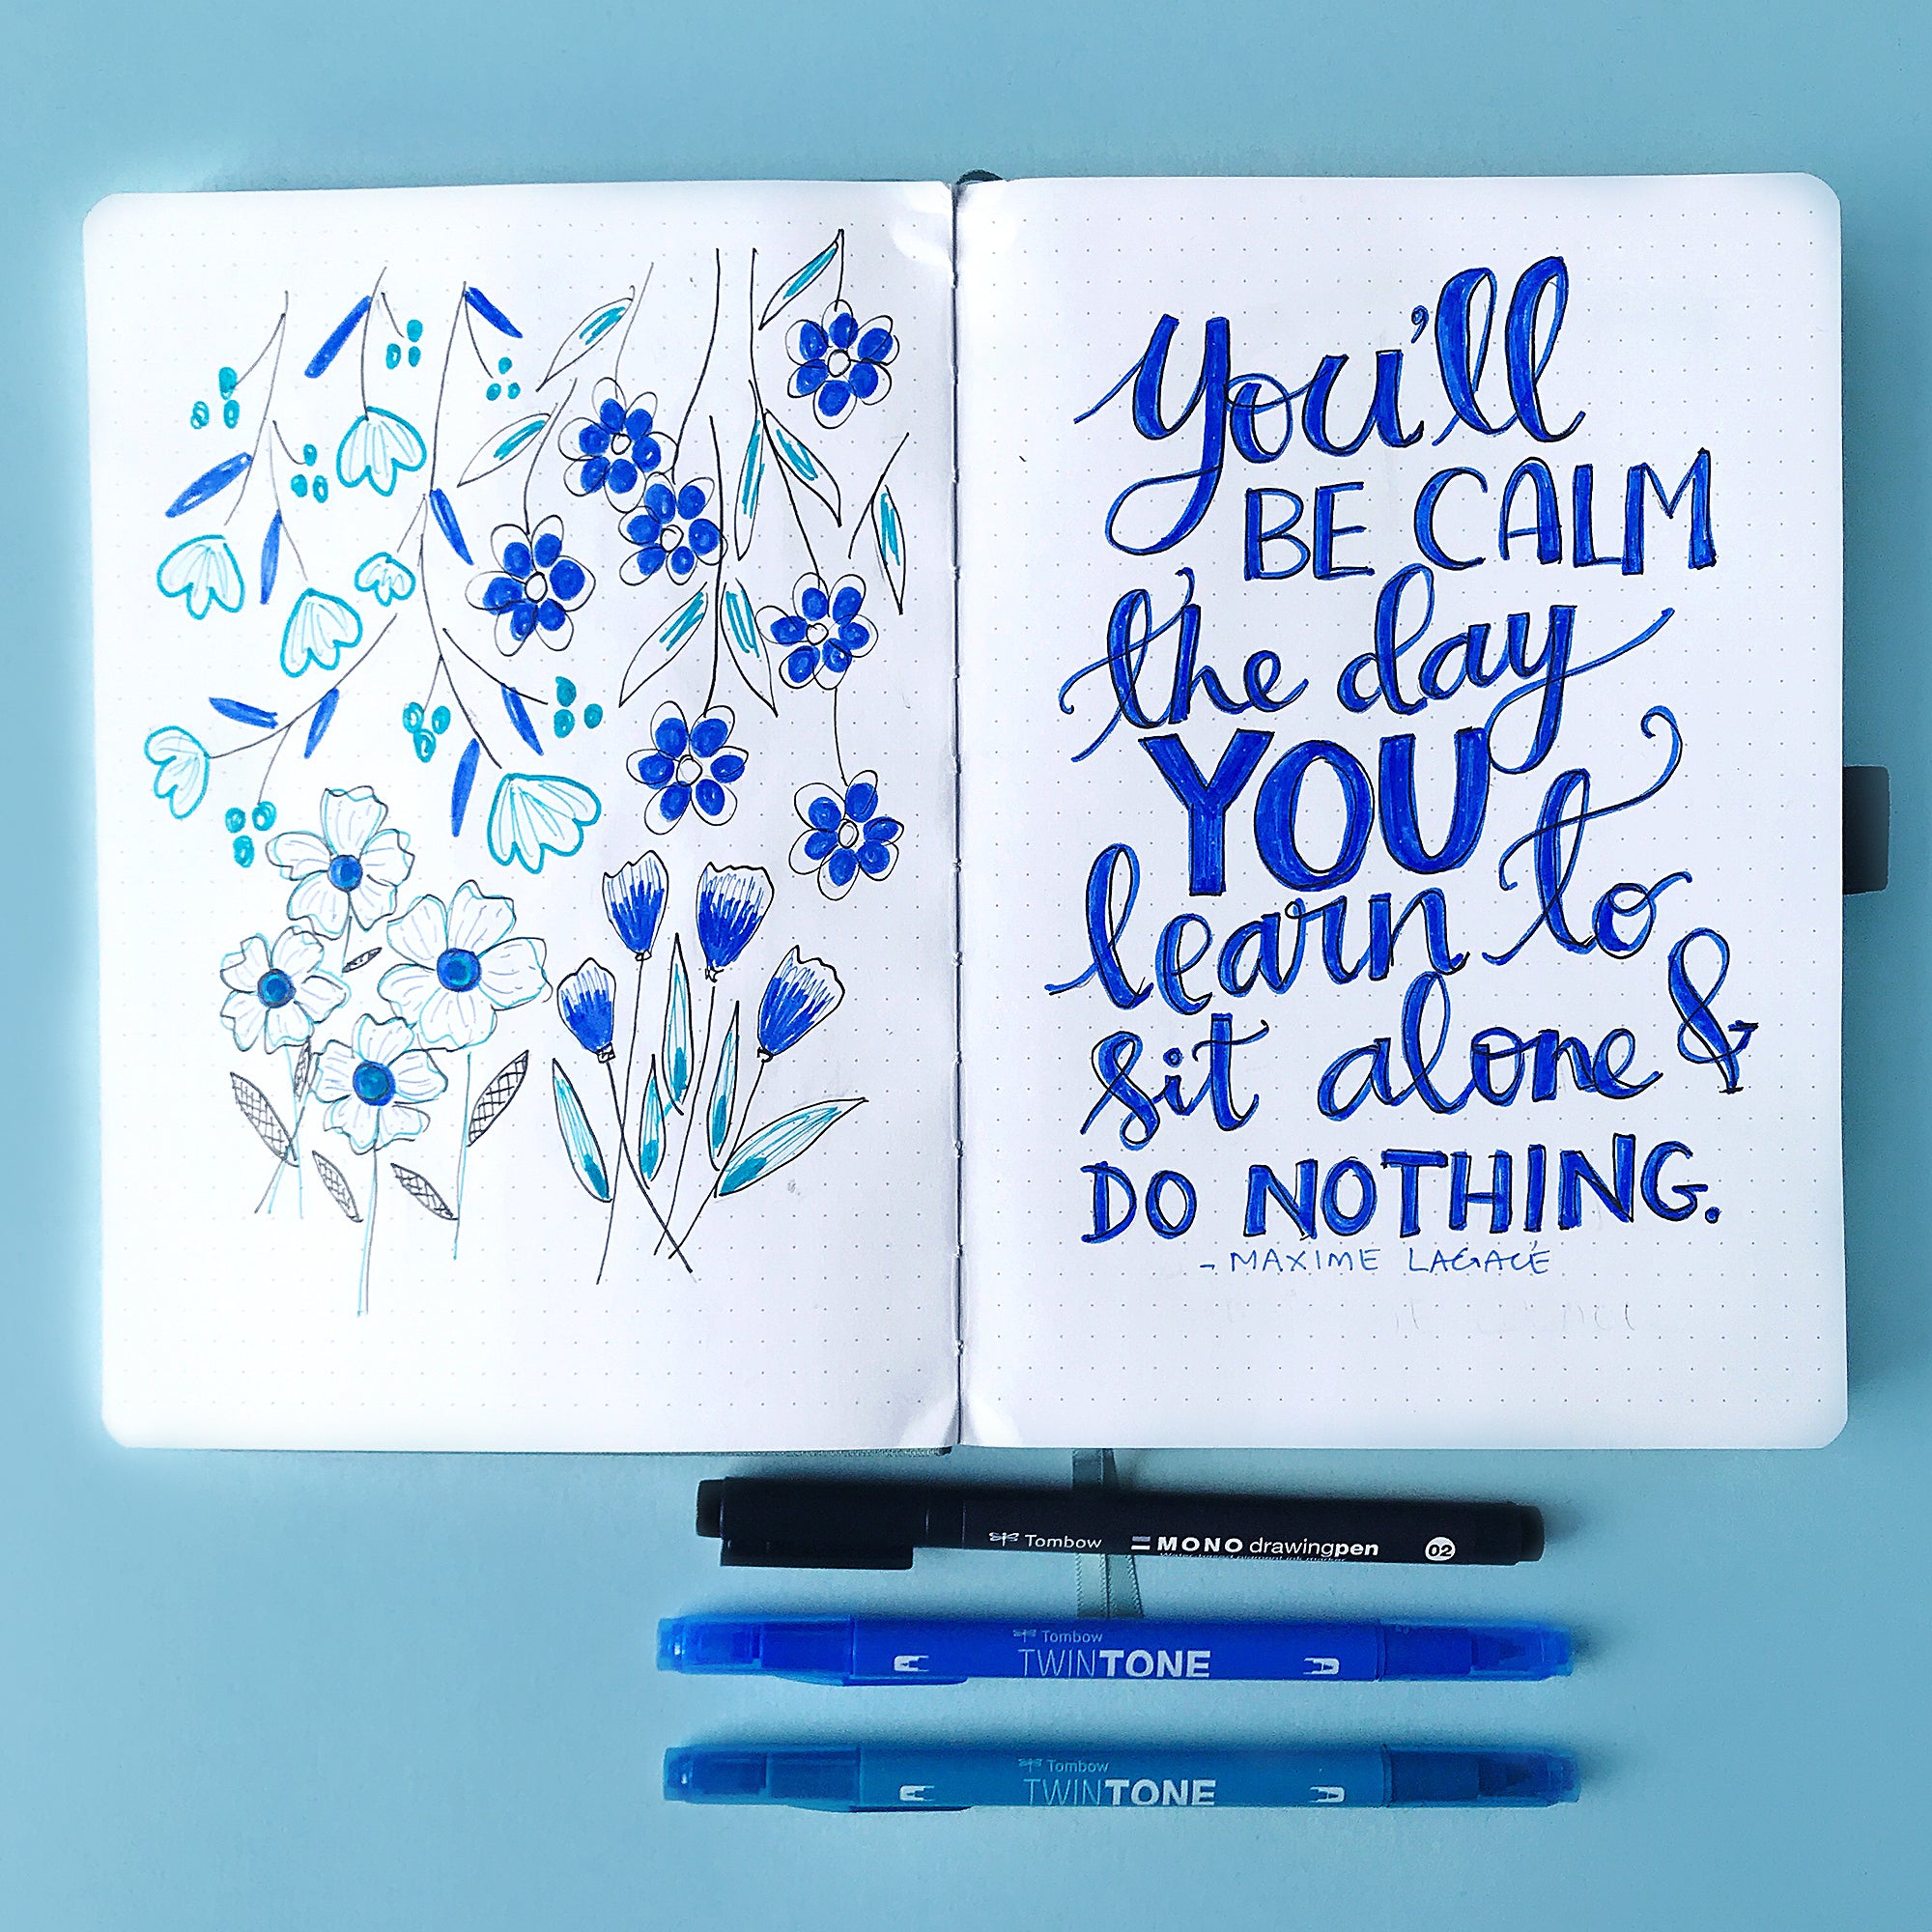 you'll
BE CALM
the day
YOU
learn to
sit alone &
DO NOTHING.
- MAXIME LAGACÉ
Tombow MONO drawingpen 02
Water-based pigment ink marker
Tombow
TWINTONE
Tombow
TWINTONE